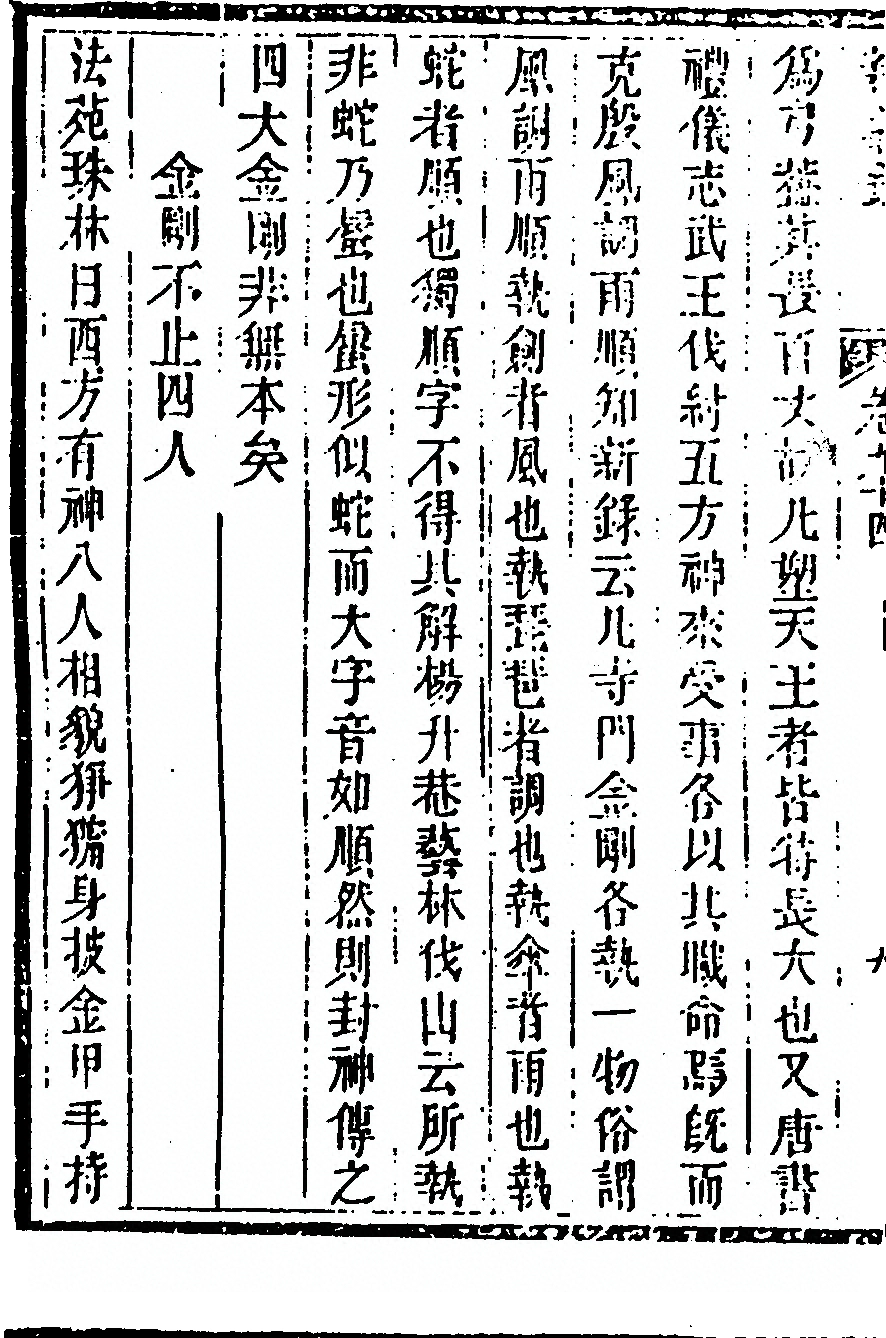 為弓其長百丈故凡塑天王者皆特長大也又唐書
禮儀志武王伐紂五方神來受事各以其職命焉既而
克殷風調雨順知新錄云凡寺門金剛各執一物俗謂
風調雨順執劍者風也執琵琶者調也執傘者雨也執
蛇者順也獨順字不得其解楊升菴藝林伐山云所執
非蛇乃蜃也蜃形似蛇而大字音如順然則封神傳之
四大金剛非無本矣
金剛不止四人
法苑珠林曰西方有神八人相貌猙獰身披金甲手持